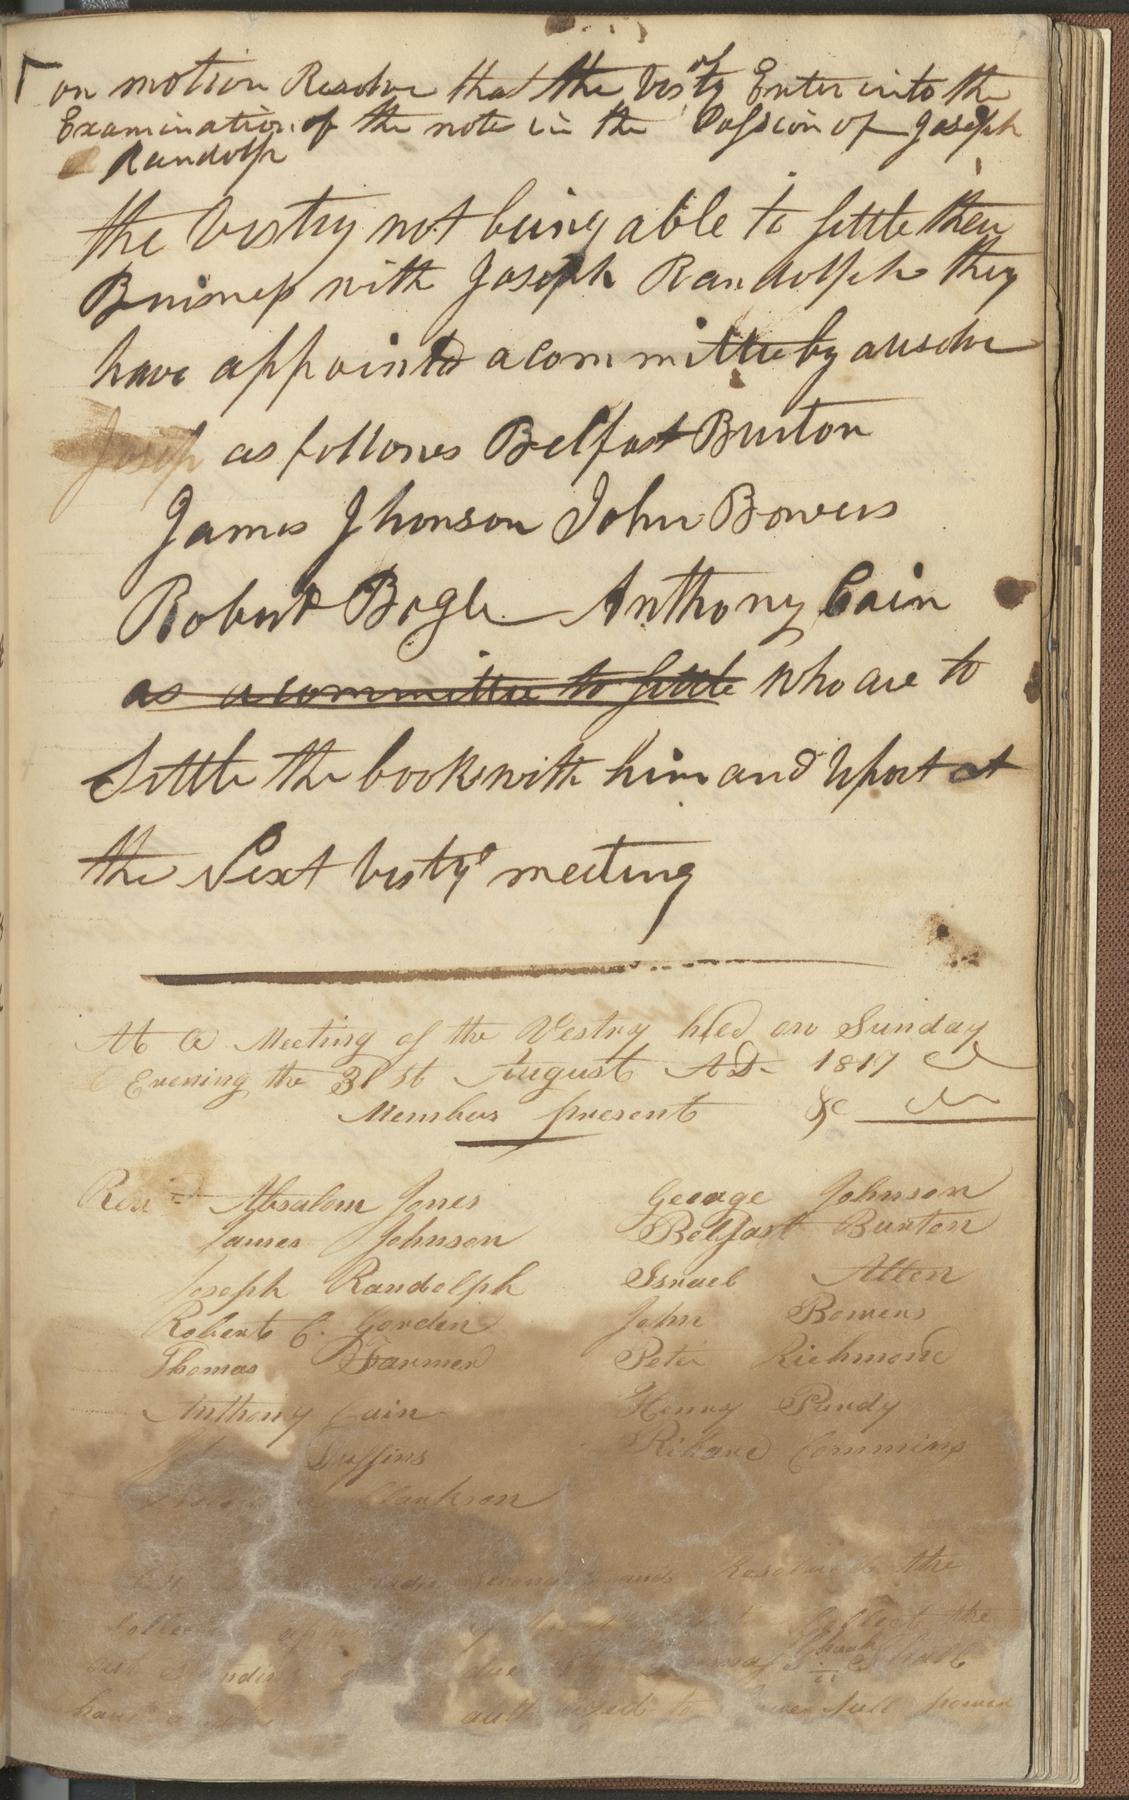 on motion Resolve that the Vestry Enter into the
Examination of the note in the Possion of Joseph
Randolph
the Vestry not being able to settle their
Buisness with Joseph Randolph they
have appointd a committee by a resolve
Joseph as follows Belfast Burton
James Jhonson John Bowers
Robert Bogle Anthony Cain
as a committee to settle who are to
Settle the books with him and report at
the Next vestry meeting
At a Meeting of the Vestry held on Sunday
Evening the 31st August A.D. 1817
Members present &c
Revd Absalom Jones George Johnson
James Johnson Belfast Burton
Joseph Randolph Israel Allen
Robert C. Gordon John Bowers
Thomas Farmer Peter Richmond
Anthony Cain Henry Purdy
Duffins Richard Commins
Clarkson
and Resolved the
Collect the
due shall
have full power